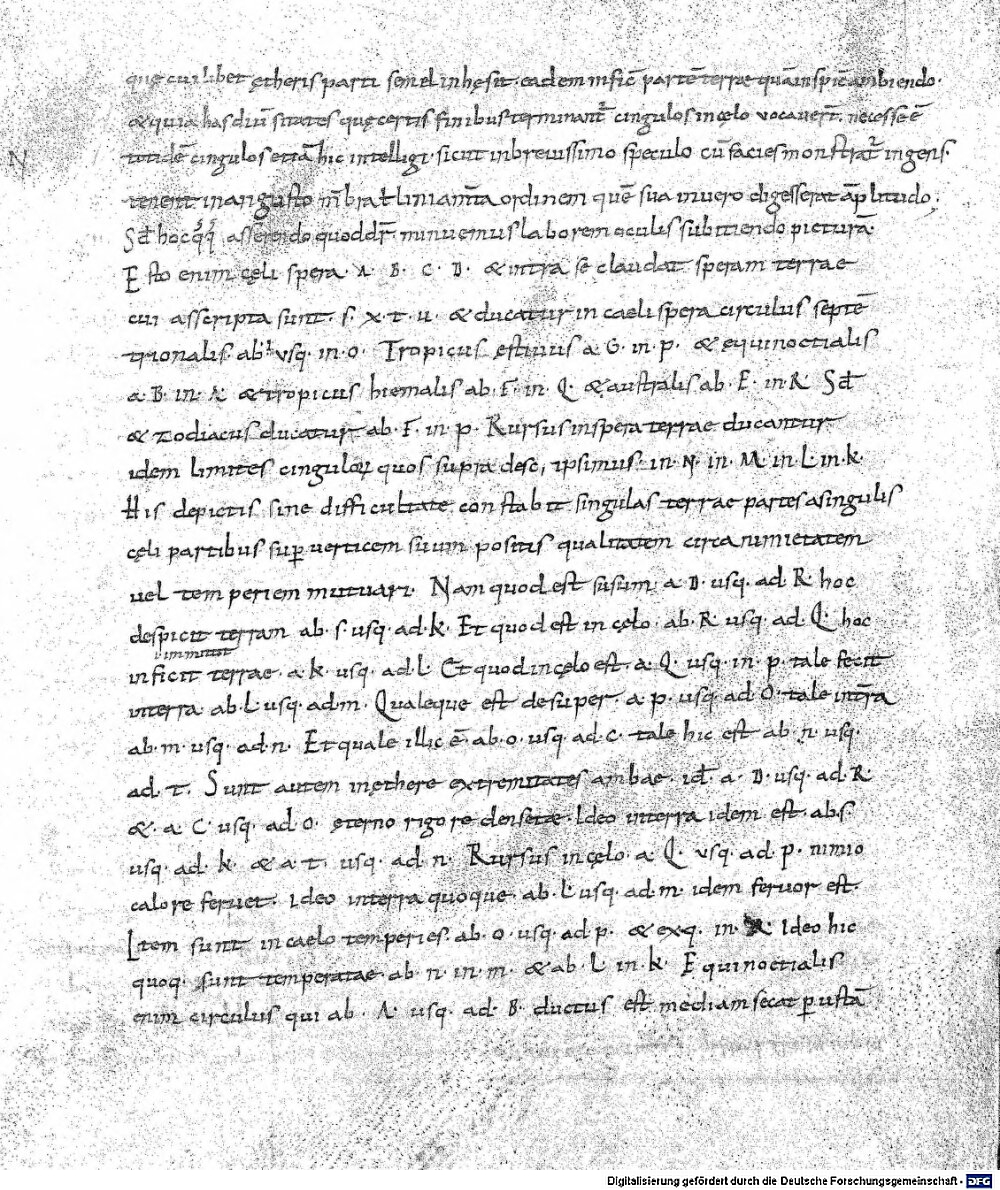 quę cuilibet ętheris parti semel inhęsit eadem inficˉ partē terrae quā inspicˉ ambiendo·
& quia has diūsitates quę certis finibus terminantˉ cingulos in cęlo vocavertˉ necesse ē
totidē cingulos etiā hic intelligi· sicut in brevissimo speculo cū facies monstratˉ ingens·
tenent in angusto mˉbra ł liniamˉta ordinem quē sua in vero digesserat āplitudo;
Sđ hoc qq asserendo quod dˉr minuemus laborem oculis subitiendo picturā·
Esto enim cęli spera· A· B· C· D· & intra se claudat speram terrae
cui asscripta sunt· s· x· t· u· & ducatur in caeli spera circulus septē
trionalis· ab ı usq· in· o· Tropicus ęstivus a G· in· p· & ęquinoctialis
a B· in· A & tropicus hiemalis ab· F· in· Q· & australis ab· E· in· R Sđ
& zodiacus ducatur ab· F· in· p· Rursus in spera terrae ducantur
idem limites cinguloꝝ quos supra desc,ipsimus· in· N· in· M in· L in· k·
His depictis sine difficultate constabit singulas terrae partes a singulis
cęli partibus suꝑ verticem suum positis qualitatem circa nimietatem
vel temperiem mutuari· Nam quod est susum· a· D· usq· ad· R hoc
despicit terram ab· s· usq· ad· k· Et quod est in cęlo· ab· R usq· ad· Q· hoc
inficit terrae· a· k· usq· ad· l· Et quod in cęlo est· a· Q· usq· in· p· tale fecit
in terra ab· L usq· ad· m· Qualeque est desuper· a· p· usq· ad· O· tale intˉra
ab· m· usq· ad· n· Et quale illic ē ab· o· usq· ad· c· tale hic est ab· n· usq·
ad· t· Sunt autem in ęthere extremitates ambae· iđ· a· D· usq· ad· R
& a C usq· ad· O· ęterno rigore densetae· Ideo in terra idem est· ab· s·
usq· ad· k· & a· t· usq· ad· n· Rursus in cęlo· a· Q· usq· ad· p· nimio
calore fervet· Ideo in terra quoque· ab· L usq· ad· m· idem fervor est·
Item sunt in caelo temperies· ab· o· usq· ad p· & ex q· in· R· Ideo hic
quoq· sunt temperatae· ab· n· in· m· & ab· L· in· k· Equinoctialis
enim circulus qui ab· A· usq· ad· B· ductus est mediam secat ꝑustā
Digitalisierung gefördert durch die Deutsche Forschungsgemeinschaft - DFG